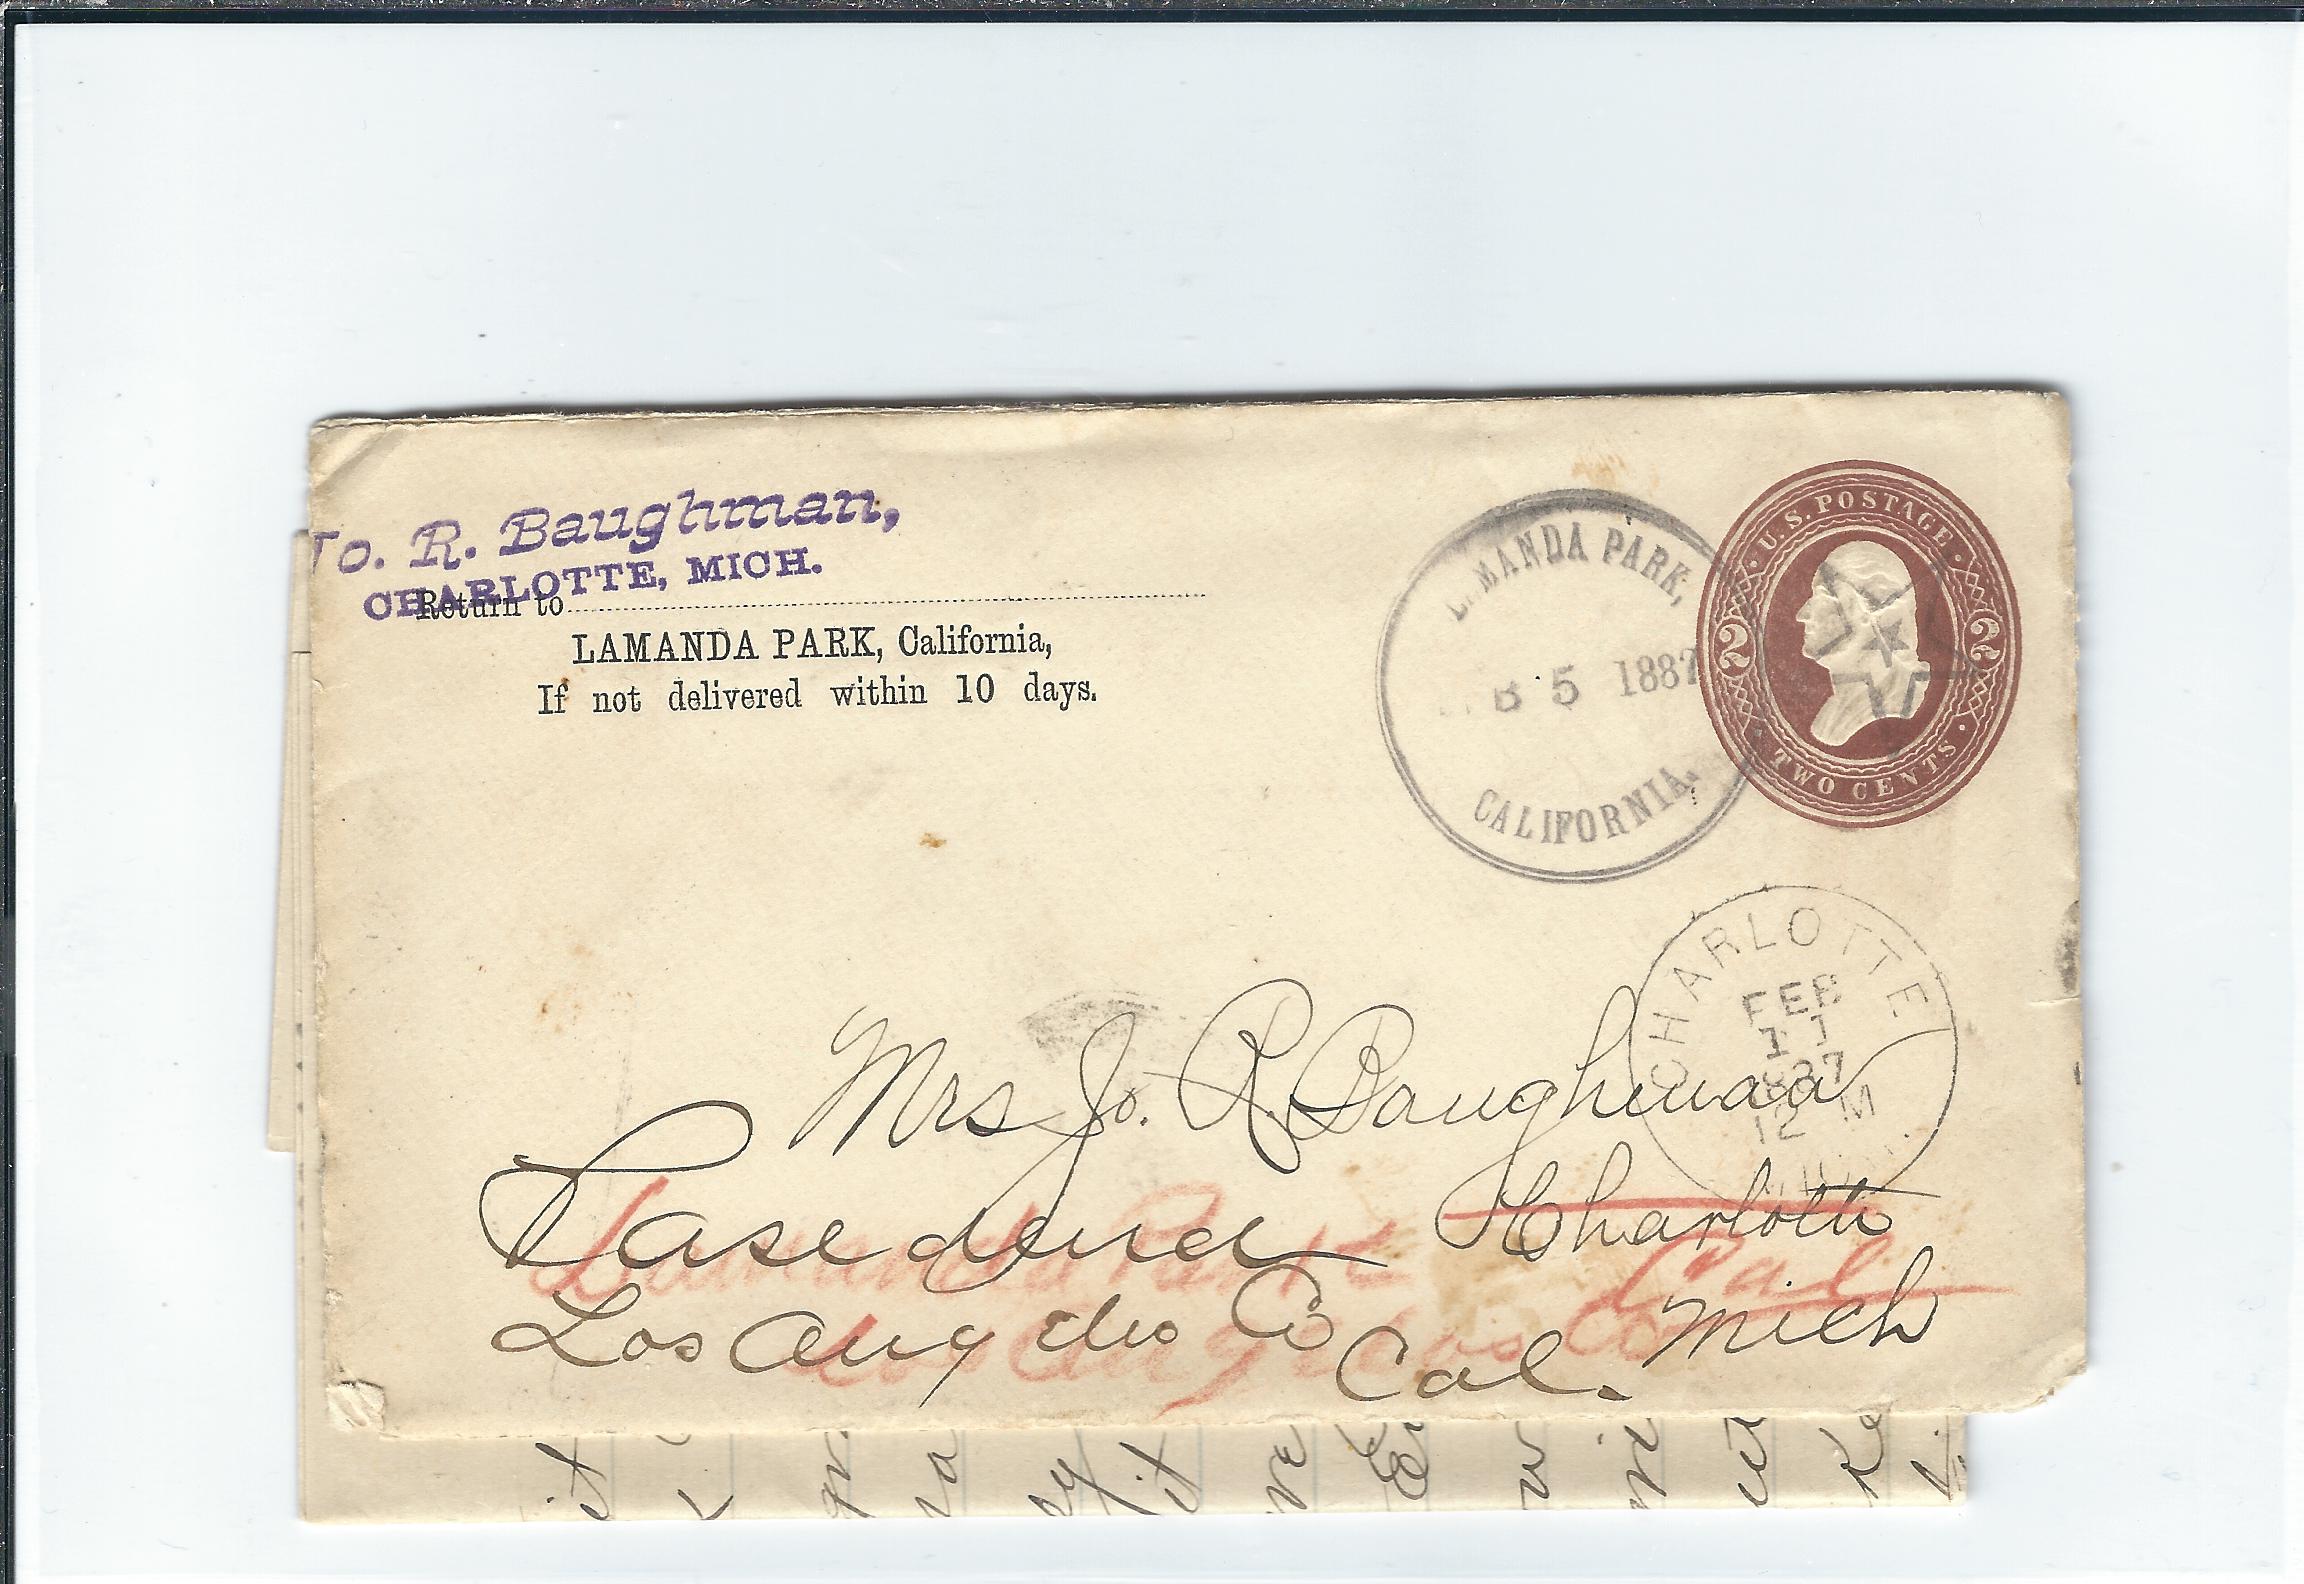 Jo. R. Baughman,
CHARLOTTE, MICH.
Return to
LAMANDA PARK, California,
If not delivered within 10 days.
LAMANDA PARK,
B 5 1887
CALIFORNIA.
U.S. POSTAGE
2 2
TWO CENTS
CHARLOTTE
FEB
11
887
12 M
MICH.
Mrs Jo. R. Baughman
Charlotte
Mich
Pasedena
Los Angeles Co Cal.
Lamanda Park
Cal
Los Angeles Co